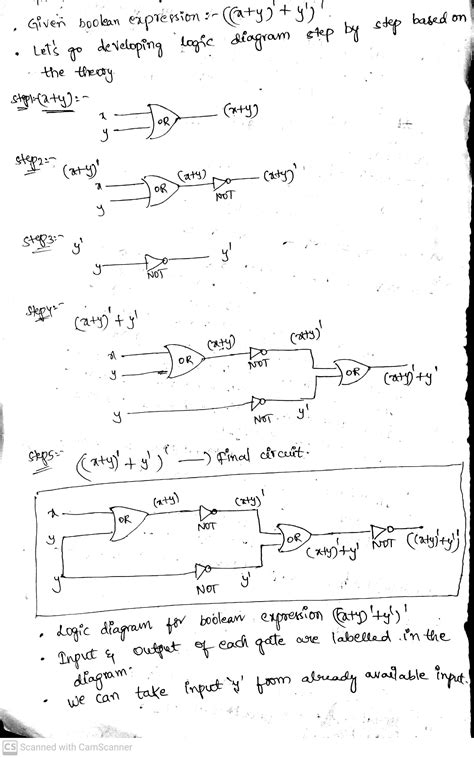 • Given boolean expression :- ((x+y)' + y')'
• Let's go developing logic diagram step by step based on
the theory
step1:-(x+y):-
x
y
OR
(x+y)
step2:-
(x+y)'
x
y
OR
(x+y)
NOT
(x+y)'
step3:-
y'
y
NOT
y'
step4:-
(x+y)' + y'
x
y
OR
(x+y)
NOT
(x+y)'
OR
(x+y)'+y'
y
NOT
y'
step5:-
((x+y)' + y')' → final circuit.
x
y
OR
(x+y)
NOT
(x+y)'
OR
(x+y)'+y'
NOT
((x+y)'+y')'
y
NOT
y'
• Logic diagram for boolean expression ((x+y)'+y')'
• Input & output of each gate are labelled in the
diagram.
• we can take input 'y' from already available input.
CS Scanned with CamScanner